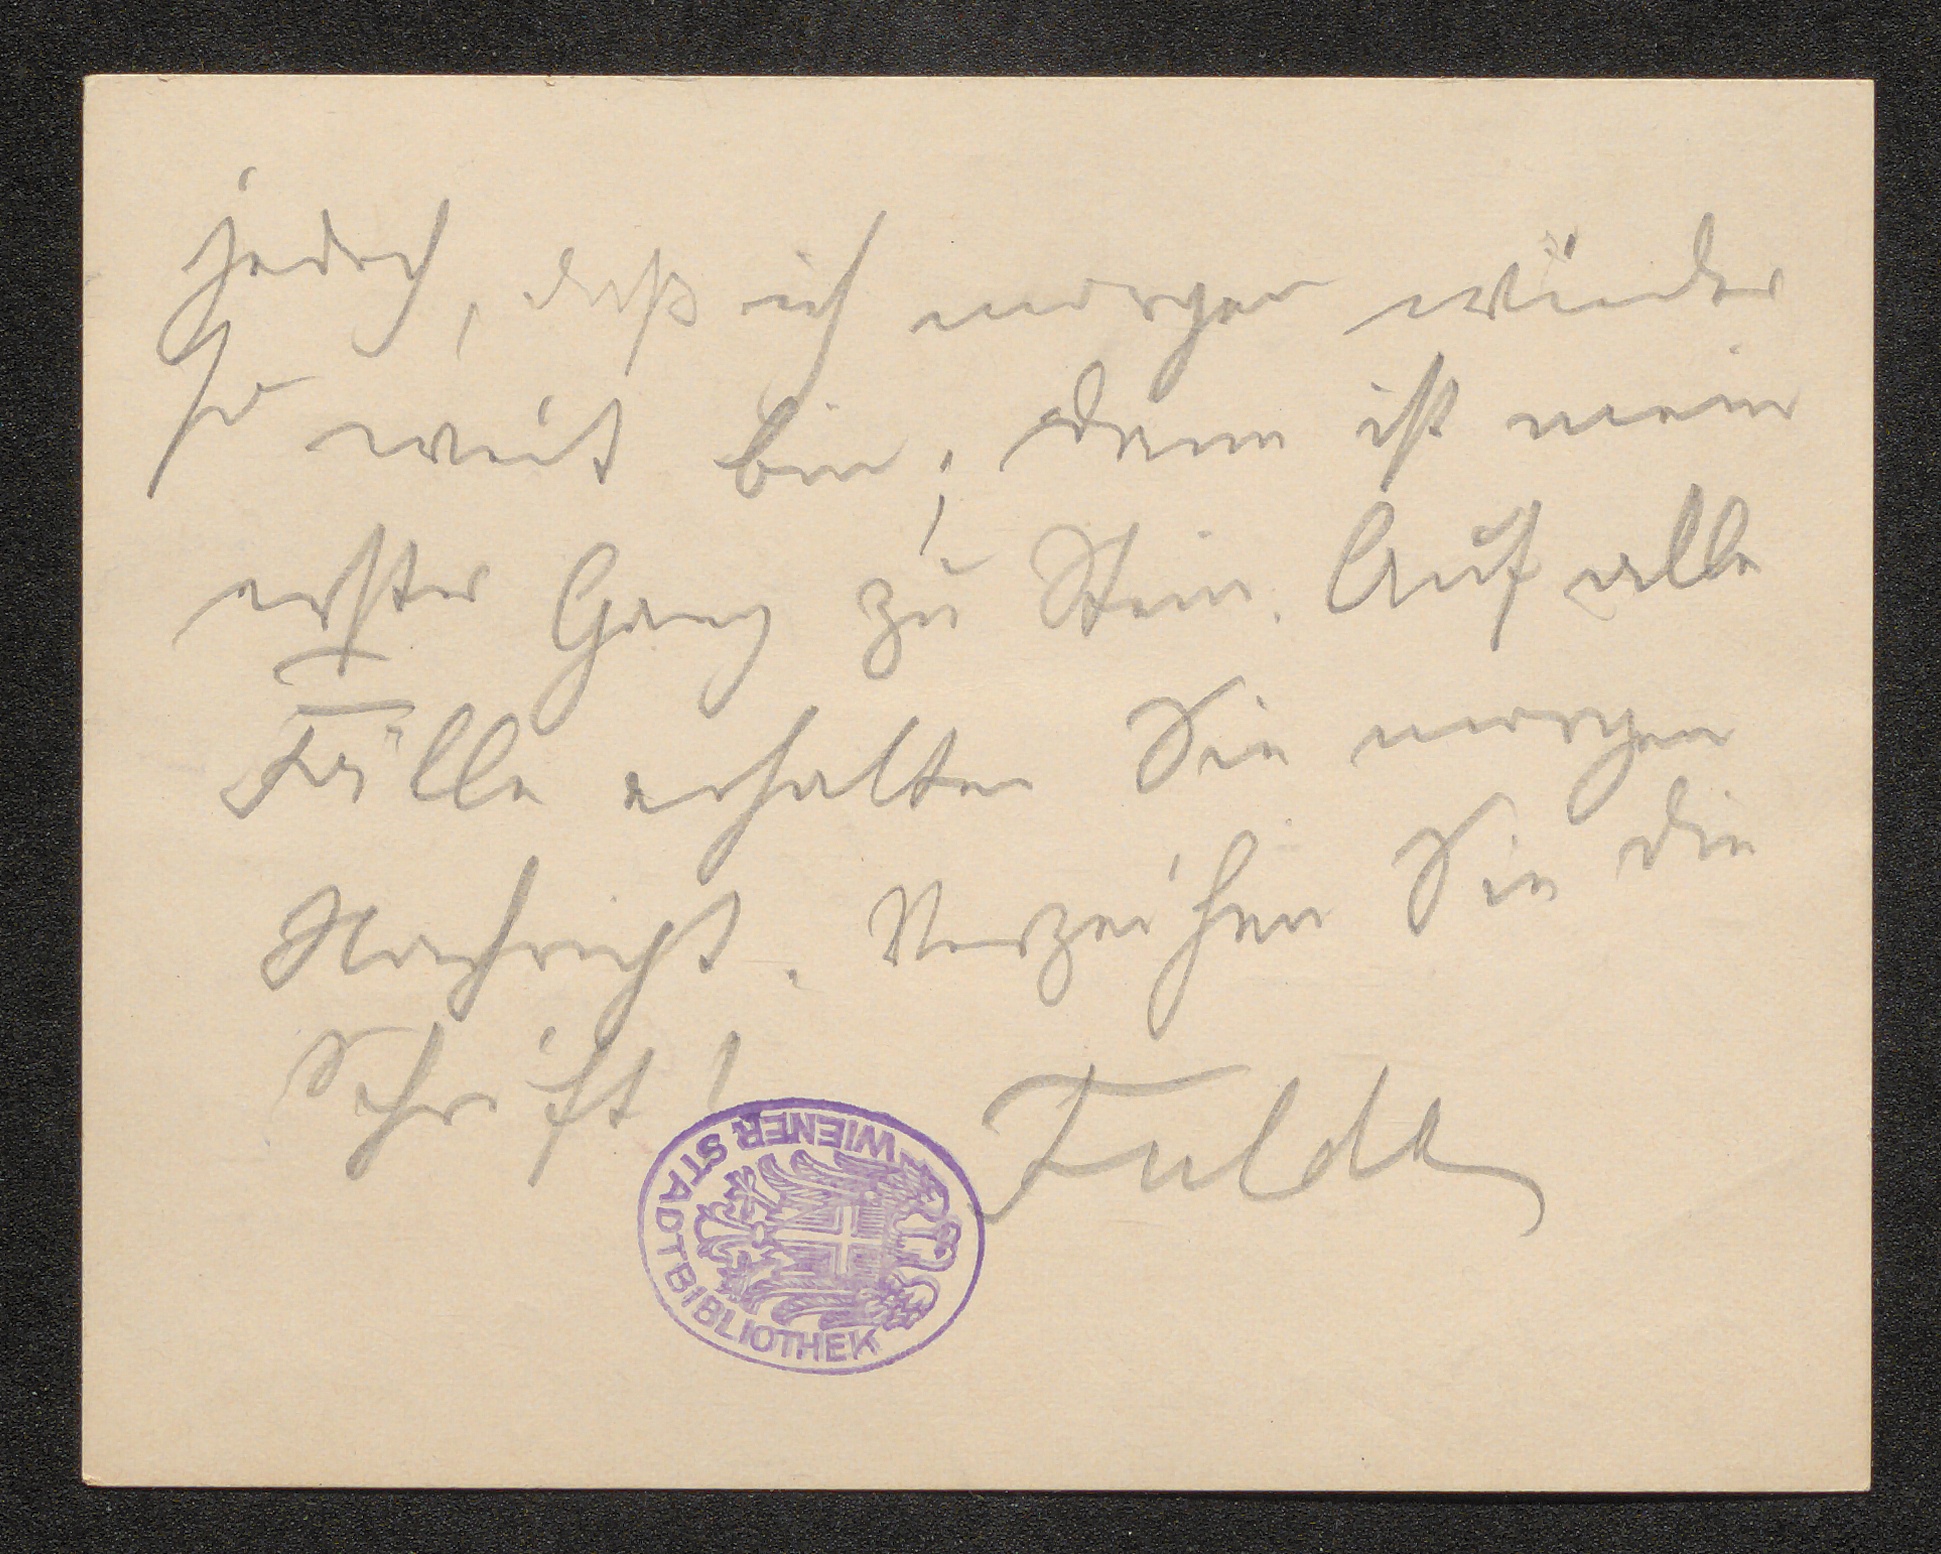 jedoch, daß ich morgen wieder
so weit bin; dann ist mein
erster Gang zu Stein. Auf alle
Fälle erhalten Sie morgen
Nachricht. Verzeihen Sie die
Schrift!
Fulda
WIENER STADTBIBLIOTHEK